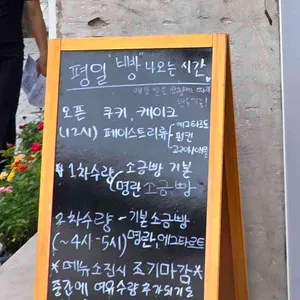 평일 "빵" 나오는 시간
오픈 쿠키, 케이크
(12시) 페이스트리류 에그타르트
휘낭
1차수량 소금빵 기본
명란 소금빵
2차수량 - 기본소금빵
(~4시-5시) 명란, 에그타르트
*메뉴소진시 조기마감*
중간에 여유수량 추가되기도